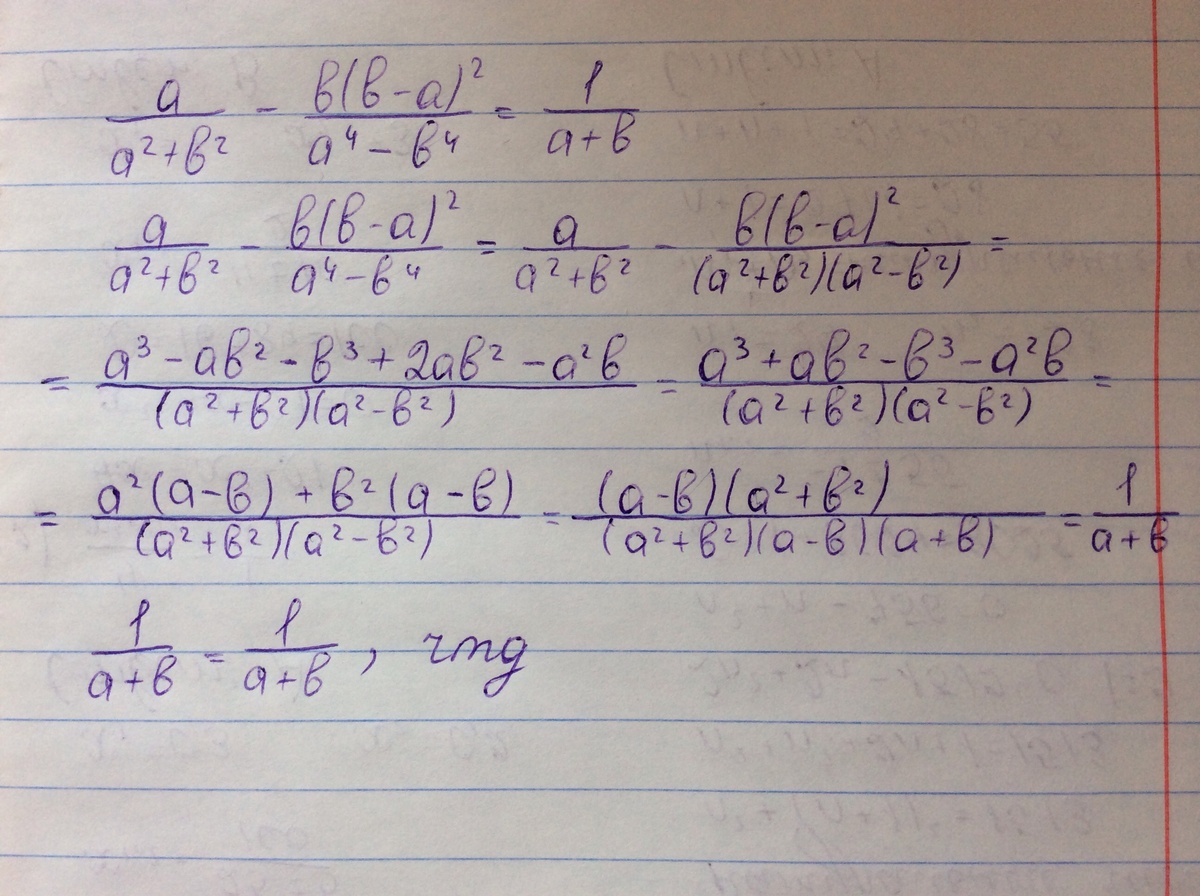 a/(a²+b²) - b(b-a)²/(a⁴-b⁴) = 1/(a+b)
a/(a²+b²) - b(b-a)²/(a⁴-b⁴) = a/(a²+b²) - b(b-a)²/((a²+b²)(a²-b²)) =
= (a³-ab²-b³+2ab²-a²b)/((a²+b²)(a²-b²)) = (a³+ab²-b³-a²b)/((a²+b²)(a²-b²)) =
= (a²(a-b)+b²(a-b))/((a²+b²)(a²-b²)) = (a-b)(a²+b²)/((a²+b²)(a-b)(a+b)) = 1/(a+b)
1/(a+b) = 1/(a+b), чтд